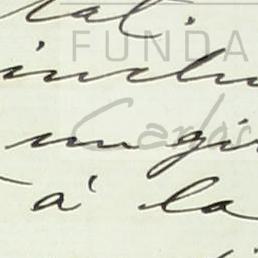 tal.
FUNDA
inclu
Carlos
un gir
á la